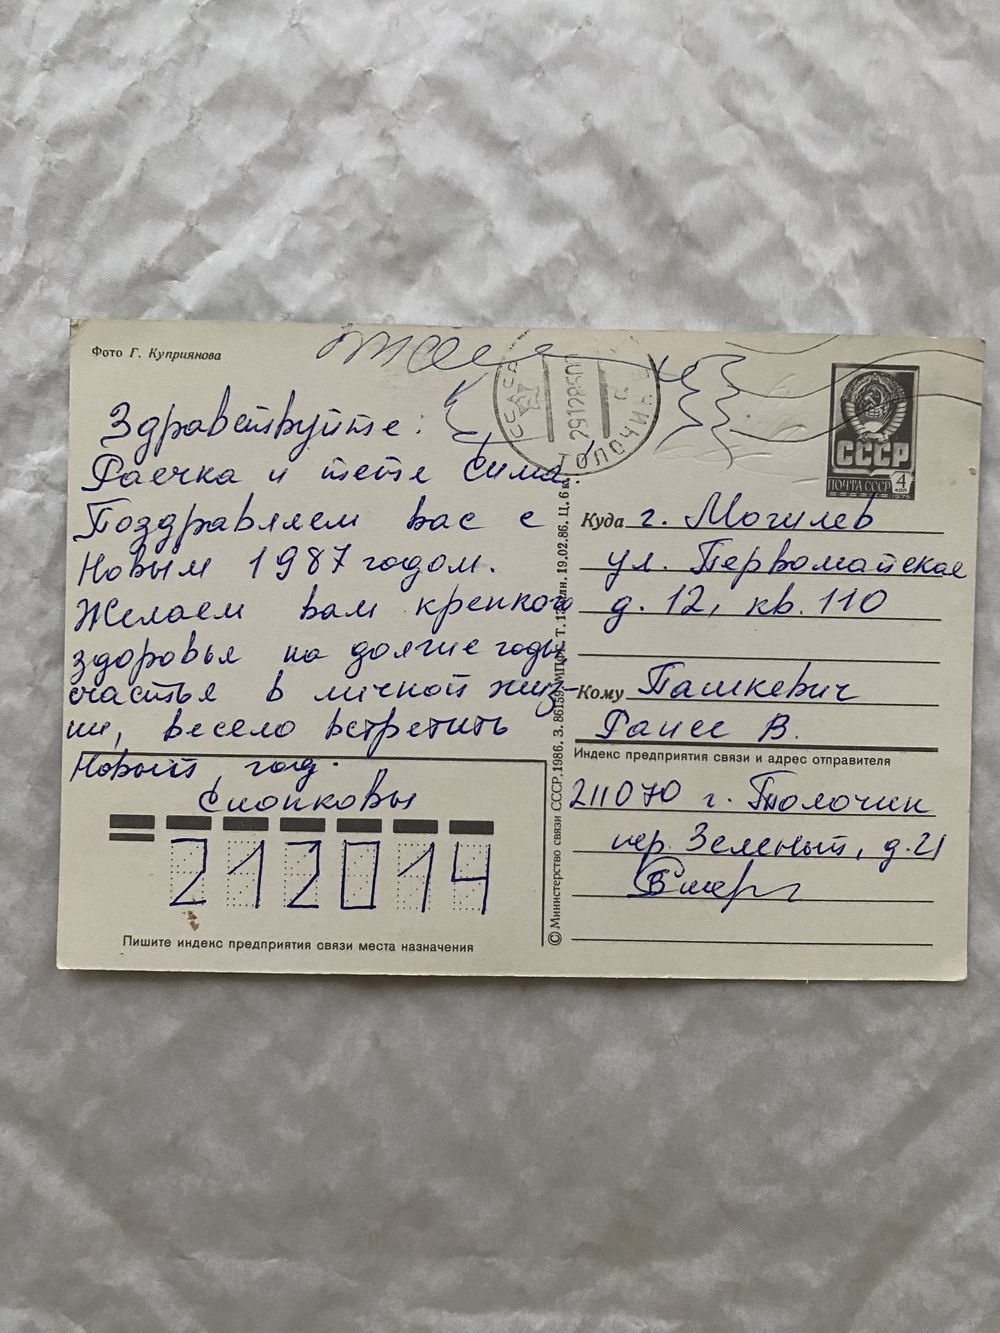 Фото Г. Куприянова
Здравствуйте:
Раечка и тётя Сима!
Поздравляем вас с
Новым 1987 годом.
Желаем вам крепкого
здоровья на долгие годы
счастья в личной жиз-
ни, весело встретить
Новый год.
Слопковы
212014
Пишите индекс предприятия связи места назначения
© Министерство связи СССР, 1986. З. 86159. МПФГ. Т. 19.02.86. Ц. 6 к.
СССР
29128609
ТОЛОЧИН
СССР
ПОЧТА СССР 4 коп
1976
Куда г. Могилев
ул. Первомайская
д. 12, кв. 110
Кому Пашкевич
Раисе В.
Индекс предприятия связи и адрес отправителя
211070 г. Толочин
пер. Зеленый, д. 21